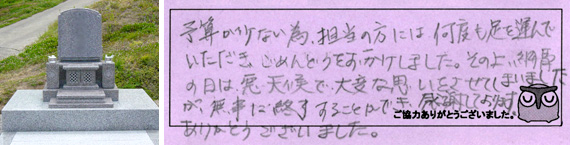 予算が少ない為、担当の方には何度も足を運んで
いただき、ごめんどうをおかけしました。その上、納骨
の日は、悪天候で、大変な思いをさせてしまいました
が、無事に終了することができ、感謝しております。
ありがとうございました。
ご協力ありがとうございました。